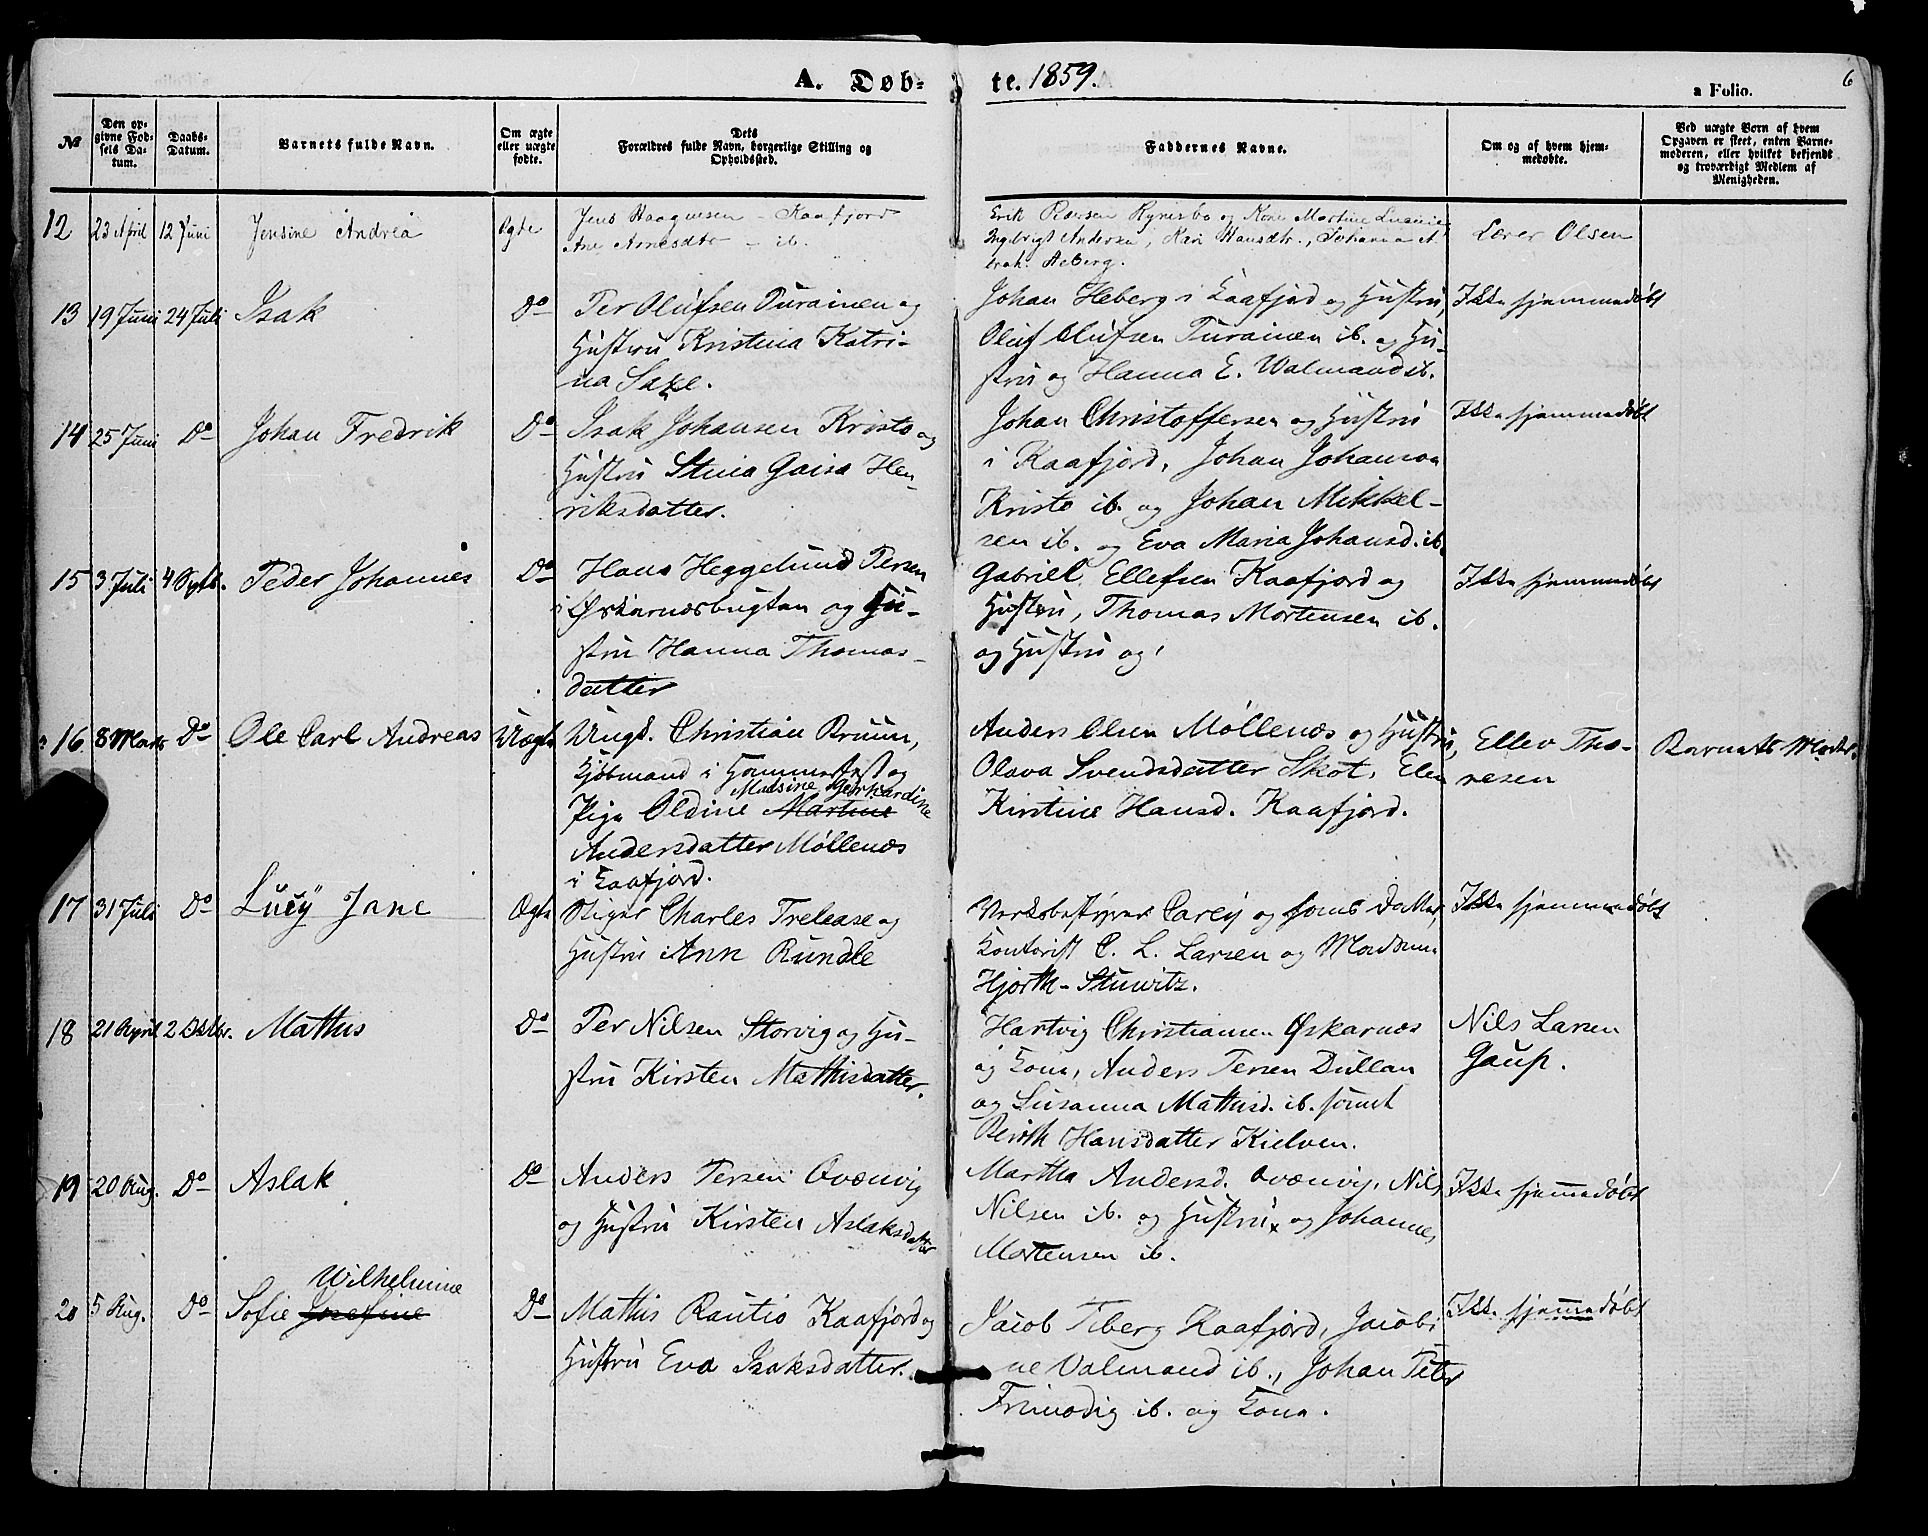 A. Døb-
te. 1859.
a Folio.
6
№
Den opgivne Fødsels Datum.
Daabs-Datum.
Barnets fulde Navn.
Om ægte eller uægte fødte.
Dets Forældres fulde Navn, borgerlige Stilling og Opholdssted.
Faddernes Navne.
Om og af hvem hjemmedøbte.
Ved uægte Børn af hvem Opgaven er skeet, enten Barnemoderen, eller hvilket bekjendt og troværdigt Medlem af Menigheden.
12 23 April 12 Juni Jensine Andrea Ægte
Jens Haagensen - Kaafjord
Ane Arnesdtr - ib.
Erik Kynsbo og Kone Martine
Ingebrigt Andersen, Kari Hansdtr., Johanna A
brah. Heberg.
Lærer Olsen
13 19 Juni 24 Juli Isak Do
Per Olufsen Turainen og
Hustru Kristina Katri-
na Saxe.
Johan Heberg i Kaafjord og Hustru,
Oluf Olufsen Turainen ib. og Hu-
stru og Hanna E. Walmand ib.
Ikke hjemmedøbt
14 25 Juni Do Johan Fredrik Do
Isak Johansen Kristo og
Hustru Stina Gaisa Hen-
riksdatter.
Johan Christoffersen og Hustru
i Kaafjord, Johan Johanson
Kristo ib. og Johan Mikkel-
sen ib. og Eva Maria Johansd. ib.
Ikke hjemmedøbt
15 3 Juli 4 Septb. Peder Johannes Do
Hans Heggelund Persen
i Øskarnæsbugten og Hu-
stru Hanna Thomas-
datter
Gabriel Ellefsen Kaafjord og
Hustru, Thomas Mortensen ib.
og Hustru og
Ikke hjemmedøbt
16 8 Marts Do Ole Carl Andreas Uægte
Ungk. Christian Bruun,
Kjøbmand i Hammerfest og
Madsine Gerhardine
Pige Oldine Martine
Andersdatter Møllenæs
i Kaafjord.
Anders Olsen Møllenæs og Hustru,
Olava Svendsdatter Skot, Elen
Kirstine Hansd. Kaafjord.
Ellev Tho-
resen
Barnets Moder.
17 31 Juli Do Lucy Jane Ægte
Stiger Charles Trelease og
Hustru Ann Rundle
Verksbestyrer Carey og hans Datter,
Kontorist C. L. Larsen og Madam
Hjorth - Stuwitz.
Ikke hjemmedøbt
18 21 April 2 Oktbr. Mathis Do
Per Nilsen Storvig og Hu-
stru Kirsten Mathisdatter.
Hartvig Christiansen Øskarnæs
og Kone, Anders Persen Dullan
og Susanna Mathisd. ib. samt
Berith Hansdatter Kielven.
Nils Larsen
Gaup.
19 20 Aug. Do Aslak Do
Anders Persen Qvænvig
og Hustru Kirsten Aslaksdatter
Martha Andersd. Qvænvig, Nils
Nilsen ib. og Hustru, og Johannes
Mortensen ib.
Ikke hjemmedøbt
Wilhelmine
20 5 Aug. Do Sofie Josefine Do
Mathis Rautio Kaafjord og
Hustru Eva Isaksdatter.
Jacob Fiberg Kaafjord, Jacobi
ne Valmand ib., Johan Peter
Frimodig ib. og Kone.
Ikke hjemmedøbt